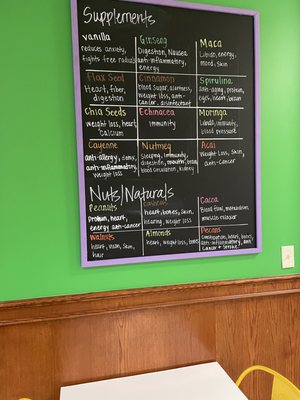 Supplements
vanilla
reduces anxiety,
fights free radicals
Ginseng
Digestion, Nausea
anti-inflammatory,
energy
Maca
Libido, energy,
mood, skin
Flax Seed
Heart, fiber,
digestion
Cinnamon
blood sugar, alertness,
weight loss, anti-
cancer, disinfectant
Spirulina
anti-aging, protein,
eyes, heart, brain
Chia Seeds
weight loss, heart,
Calcium
Echinacea
immunity
Moringa
blood pressure
Cayenne
anti-allergy,
anti-inflammatory,
weight loss
Nutmeg
Sleeping, immunity,
digestion,
blood circulation, kidney
Acai
Weight Loss, skin,
anti-cancer
Nuts/Naturals
Peanuts
Protein, heart,
energy anti-cancer
Cashews
heart, bones, skin,
hearing, weight loss
Cacoa
Blood flow,
muscle
Walnuts
heart, skin,
hair
Almonds
heart, weight loss, bones
Pecans
heart, bones,
anti-inflammatory, anti
cancer & stroke